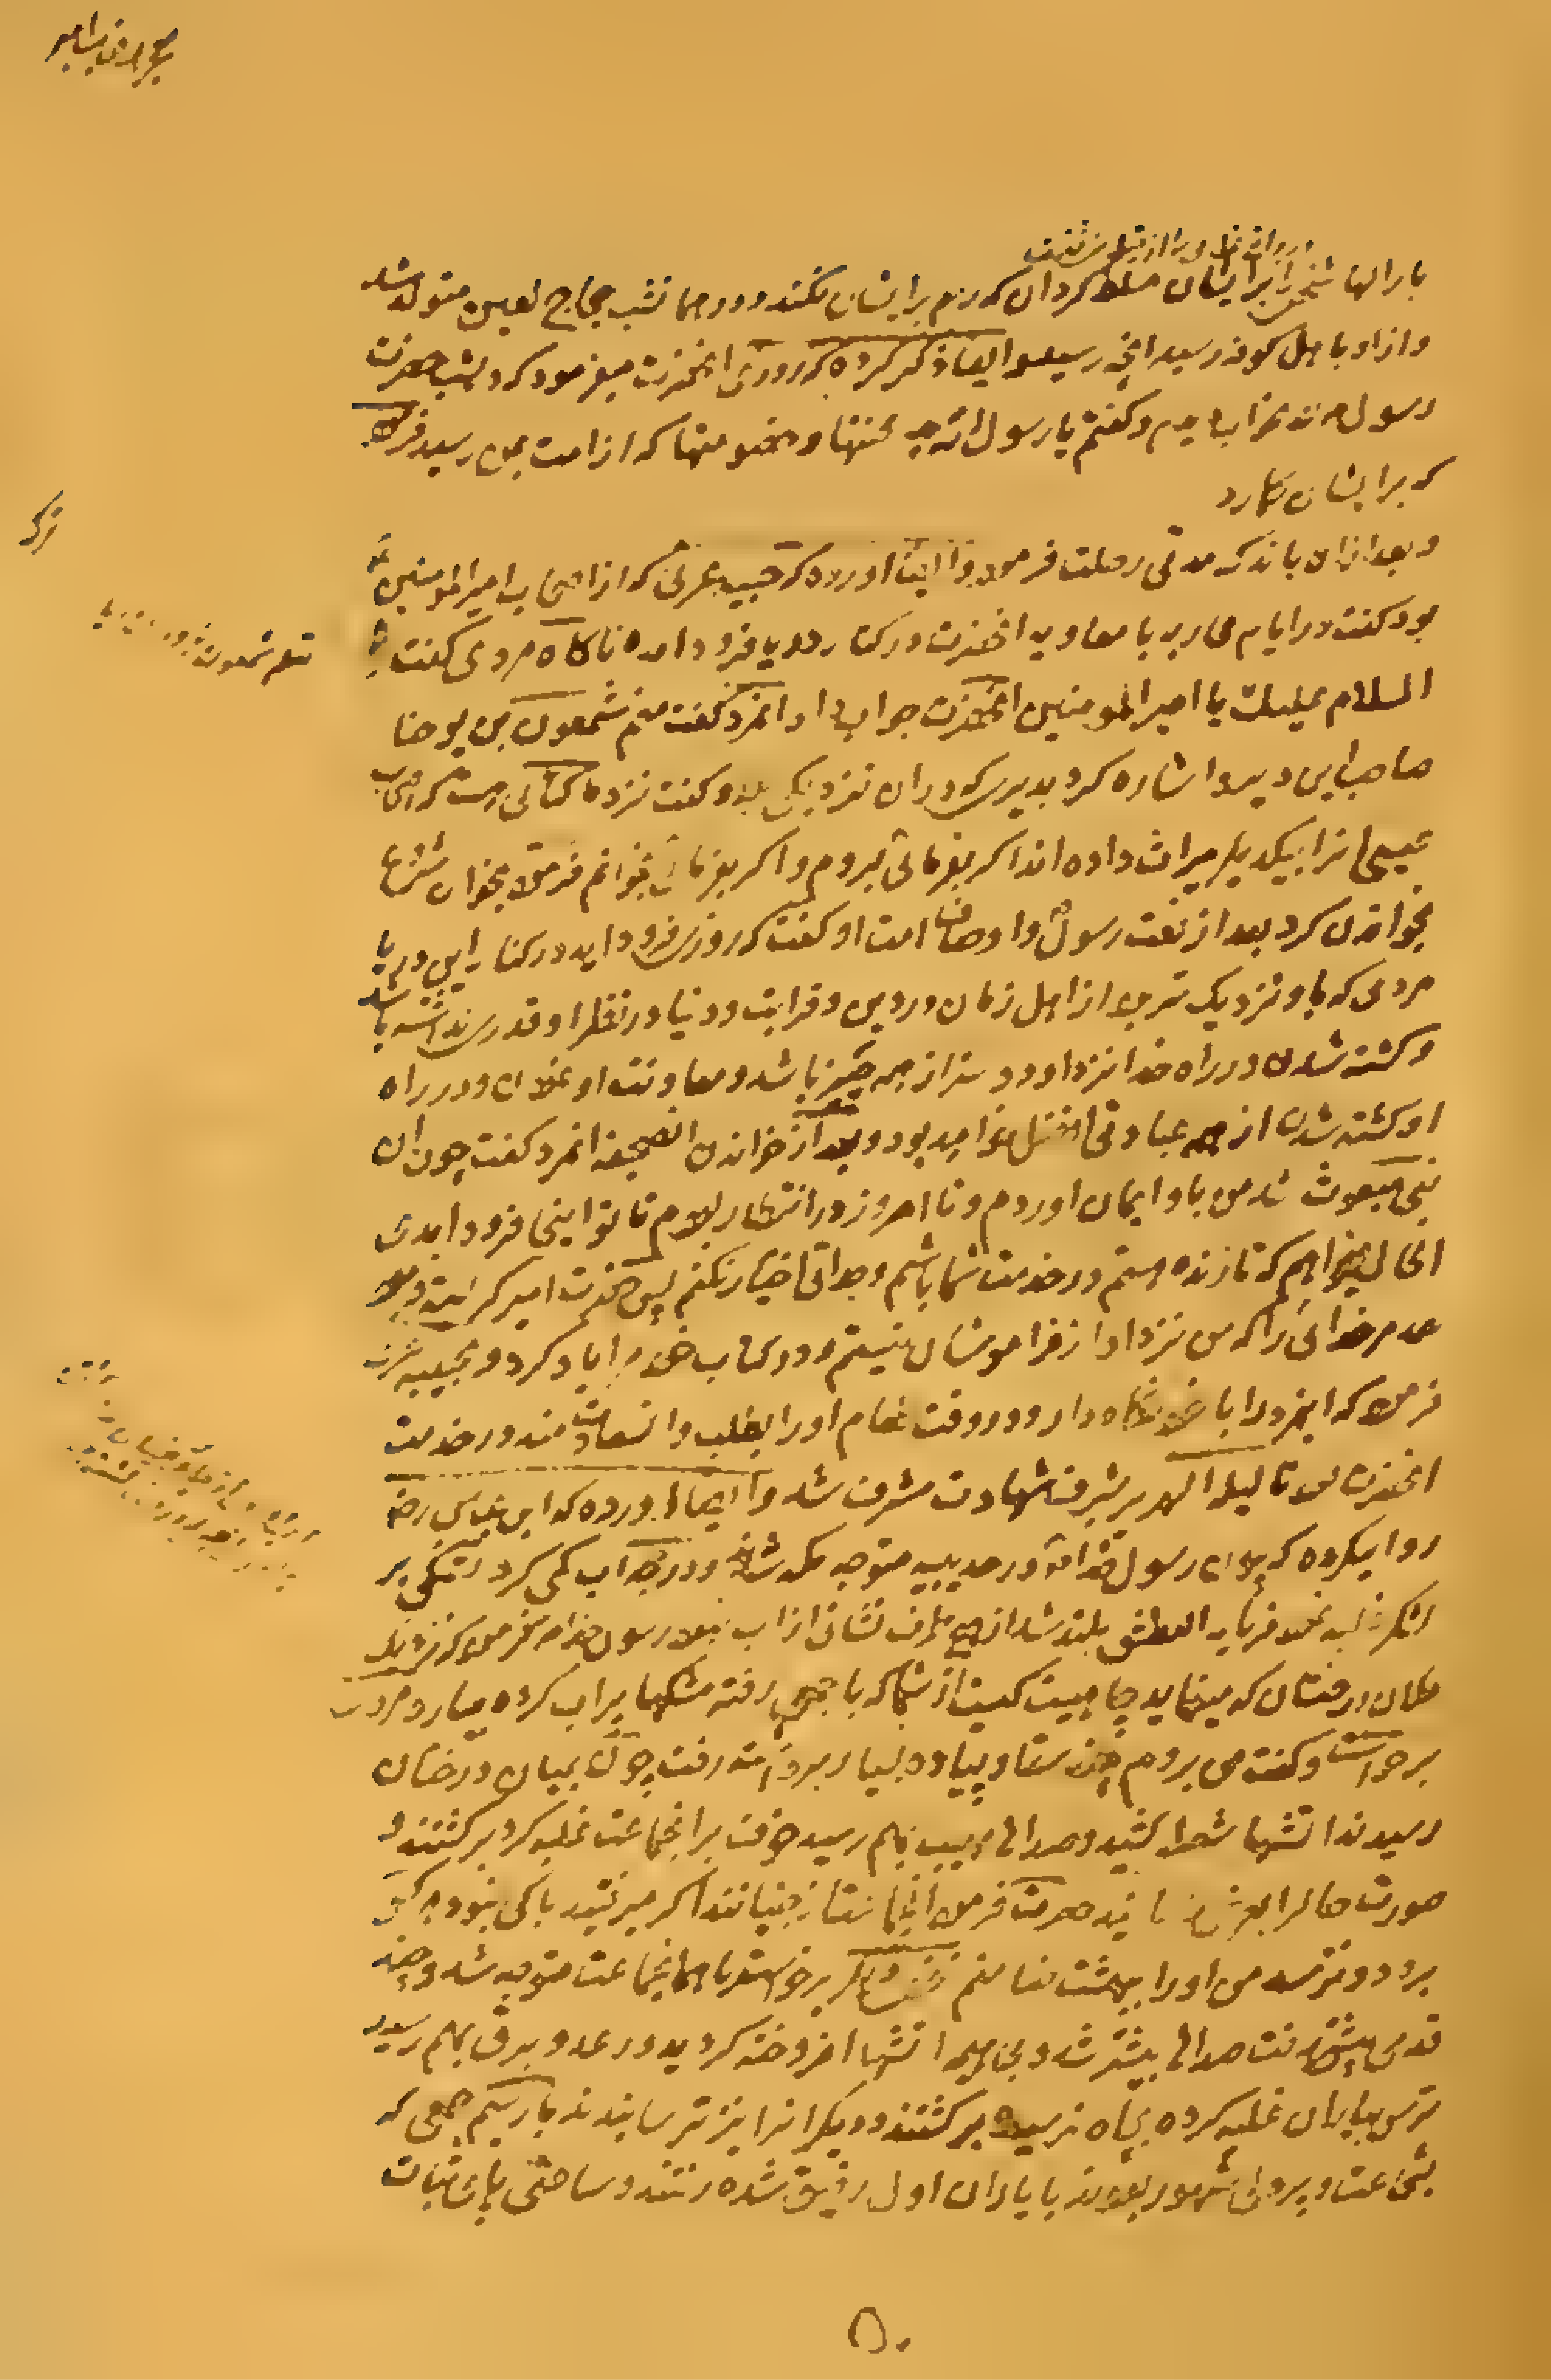 بار الها شخصی را بر ایشان مسلط کردان که رحم بر ایشان نکند و در همانشب حجاج لعین متولد شد
و از او باهل کوفه رسید انچه رسید و ایضا ذکر کرده که روزی انحضرت میفرمود که دیشب حضرت
رسول را بخواب دیدم و کفتم یا رسول الله چه محنتها و خصومتها که از امت بمن رسید فرمود
که بر ایشان
و بعد ازان باندک مدتی رحلت فرمود و ایضا اورده که حبیه عرنی که از اصحاب امیر المومنین
بود کفت در ایام محاربه با معاویه انحضرت در کنار دریا فرود امده ناکاه مردی کفت
السلام علیک یا امیر المومنین انحضرت جواب داد انمرد کفت منم شمعون بن یوحنا
صاحب این دیر و اشاره کرد بدیری که دران نزدیکی بود و کفت نزد ما کتابی هست که اصحاب
عیسی انرا بیکدیکر میراث داده اند اکر بفرمائی بروم و اکر بفرمائی بخوانم فرمود بخوان شروع
بخواندن کرد بعد از نعت رسول و اوصاف امت او کفت که روزی فرود اید در کنار این دریا
مردی که باو نزدیک تر بود از اهل زمان در دین و قرابت و دنیا در نظر او قدری نداشته باشد
و کشته شدن در راه خدا نزد او دوستر از همه چیز باشد و معاونت او نمودن و در راه
او کشته شدن از همه عبادتی افضل خواهد بود و بعد از خواندن انصحیفه انمرد کفت چون ان
نبی مبعوث شد من باو ایمان اوردم و تا امروز در انتظار بودم تا تو اینجا فرود امدی
الحال میخواهم که تا زنده هستم در خدمت شما باشم و جدائی اختیار نکنم پس حضرت امیر کریست و فرمود
حمد مر خدائی را که من نزد او از فراموشان نیستم و در کتاب خود مرا یاد کرد و بحبیه عرنی
فرمود که اینمرد را با خود نکاه دار و در وقت طعام او را بطلب و انسعادتمند در خدمت
انحضرت بود تا لیلة الهریر بشرف شهادت مشرف شد و ایضا اورده که ابن عباس رض
روایت کرده که چون رسول خدا در حدیبیه متوجه مکه شد و در جحفه اب کمی کرد تشنکی بر
لشکر غلبه نمود فریاد العطش بلند شد از هیچ طرف نشانی از اب نبود رسول خدا فرمود که نزدیک
بان درختان که مینماید چاهیست کیست از شما که با جمعی رفته مشکها پر اب کرده بیارد مردی
برخواست و کفت می بروم چند سقا و پیاده بسیار برداشته رفت چون بمیان درختان
رسیدند اتشها شعله کشید و صداهای مهیب بهم رسید خوف بر انجماعت غلبه کرد برکشتند و
صورت حال را بعرض رسانیدند حضرت فرمود انها از جنیانند اکر میرفتید باکی نبود هر که
برود و نترسد من او را ببهشت ضامنم شخص دیکر برخواست با همانجماعت متوجه شد و چند
قدمی پیشتر رفت صداها بیشتر شد و اتشها افروخته کردید و رعد و برق بهم رسید
ترس بیاران غلبه کرده بچاه نرسیده برکشتند و دیکرانرا نیز ترسانیدند بار سیم جمعی که
بشجاعت و پردلی مشهور بودند با یاران اول رفیق شده رفتند و ساعتی پای ثبات
۵۰